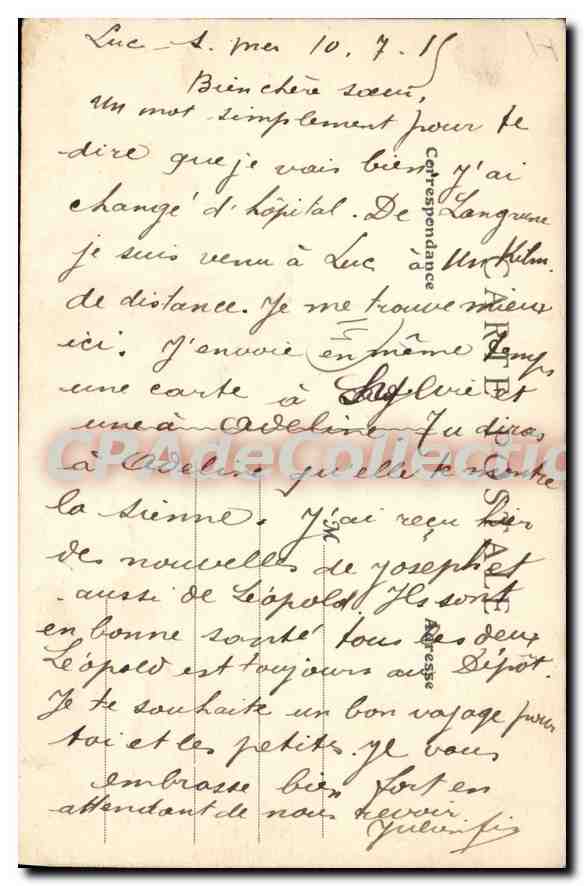 Luc s. mer 10. 7. 15
Bien chère sœur,
un mot simplement pour te
dire que je vais bien, j'ai
changé d'hôpital. De Langrune
je suis venu à Luc à un Kilm.
de distance. Je me trouve mieux
ici. J'envoie en même temps
une carte à Sylvie et
une à Adeline. Tu diras
à Adeline qu'elle te montre
la sienne. J'ai reçu hier
des nouvelles de Joseph et
aussi de Léopold. Ils sont
en bonne santé tous les deux
Léopold est toujours au Dépôt.
Je te souhaite un bon voyage pour
toi et les petites. Je vous
embrasse bien fort en
attendant de nous revoir
CARTE POSTALE
Correspondance
Adresse
M
CPAdeCollection